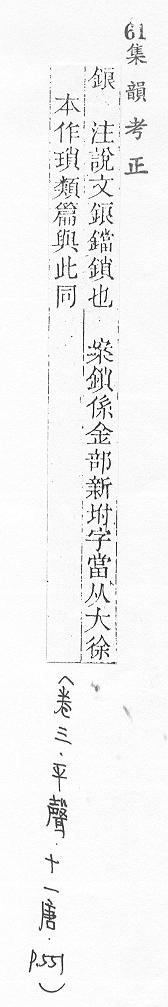 61集韻考正
鋃 注說文鋃鐺鎖也 案鎖係金部新坿字當从大徐
本作瑣類篇與此同
(卷三．平聲．十一唐．P.551)